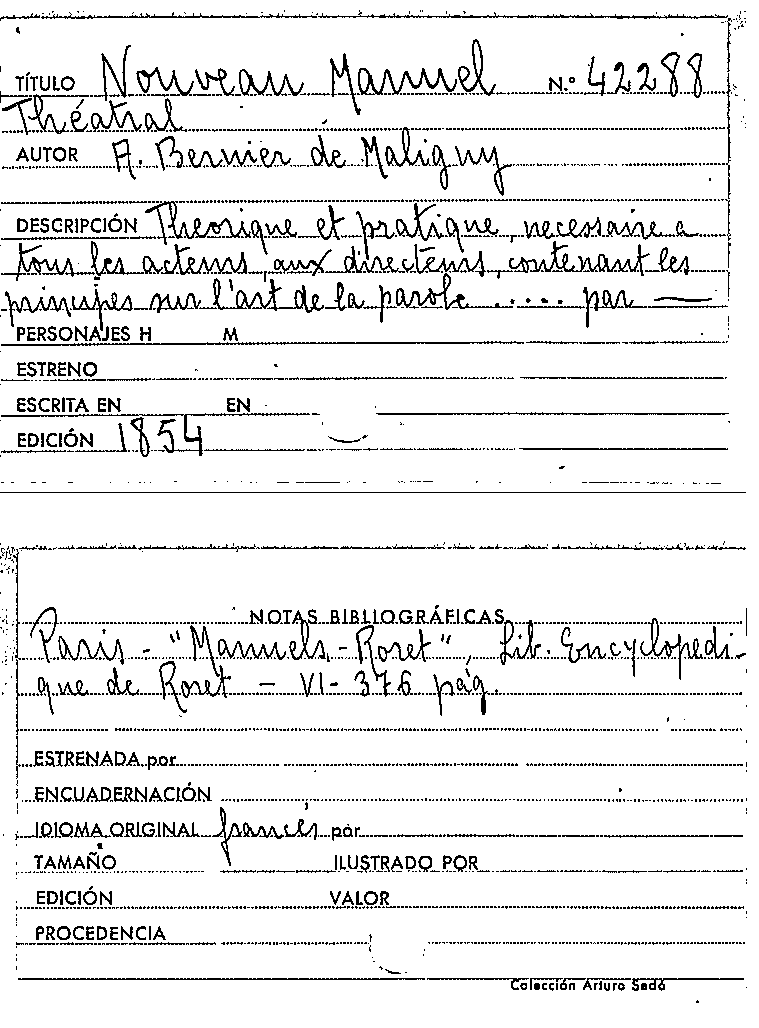 TÍTULO Nouveau Manuel N.º 42288
Théatral
AUTOR A. Bernier de Maligny
DESCRIPCIÓN Theorique et pratique, necessaire a
tous les acteurs, aux directeurs, contenant les
principes sur l'art de la parole ..... par —
PERSONAJES H M
ESTRENO
ESCRITA EN EN
EDICIÓN 1854
NOTAS BIBLIOGRÁFICAS
Paris - "Manuels-Roret", Lib. Encyclopedi-
que de Roret - VI - 376 pág.
ESTRENADA por
ENCUADERNACIÓN
IDIOMA ORIGINAL francés por
TAMAÑO ILUSTRADO POR
EDICIÓN VALOR
PROCEDENCIA
Colección Arturo Sedó